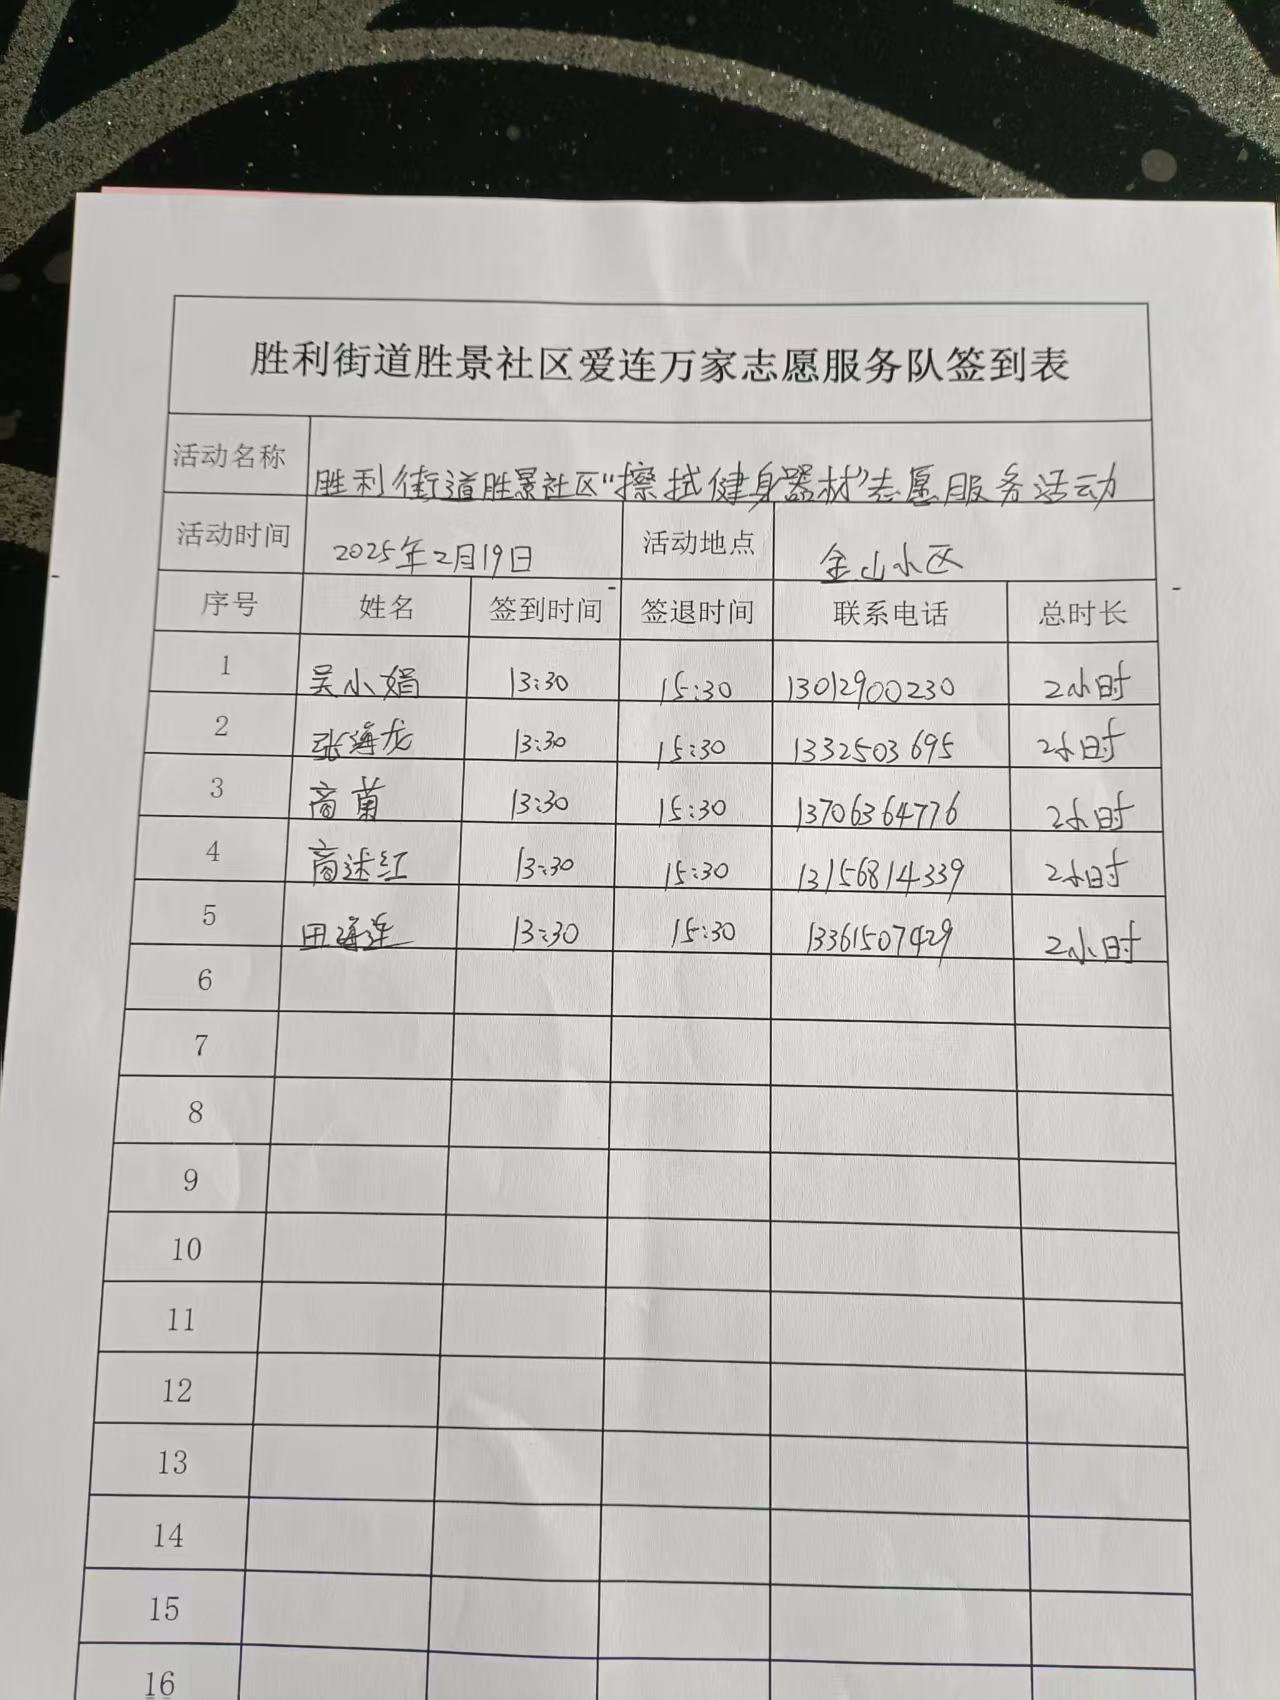 胜利街道胜景社区爱连万家志愿服务队签到表
活动名称 胜利街道胜景社区"擦拭健身器材"志愿服务活动
活动时间 2025年2月19日 活动地点 金山小区
序号 姓名 签到时间 签退时间 联系电话 总时长
1 吴小娟 13:30 15:30 13012900230 2小时
2 张海龙 13:30 15:30 1332503695 2小时
3 商菊 13:30 15:30 13706364776 2小时
4 商述红 13:30 15:30 13156814339 2小时
5 田海莲 13:30 15:30 13361507429 2小时
6
7
8
9
10
11
12
13
14
15
16